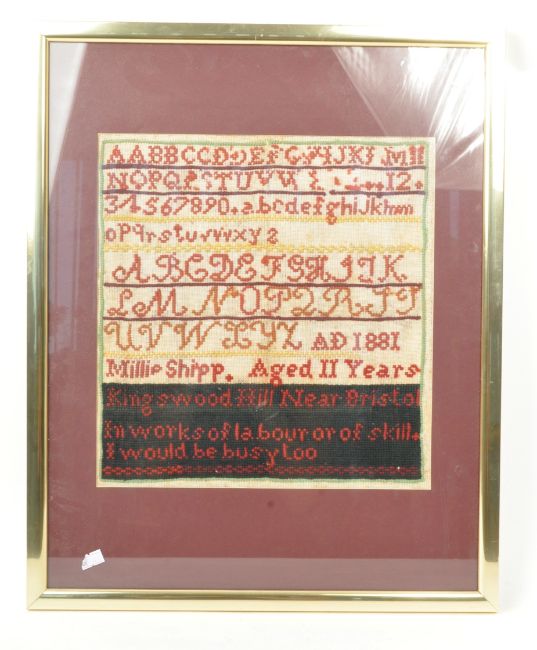 AABBCCDDEFGHIJKL M
NOPQRSTUVW 12
34567890.abcdefghijklmn
opqrstuvwxyz
ABCDEFGHIJK
LMNOPQRST
UVWXYZ AD 1881
Millie Shipp. Aged 11 Years
Kingswood Hill Near Bristol
In works of labour or of skill.
I would be busy too